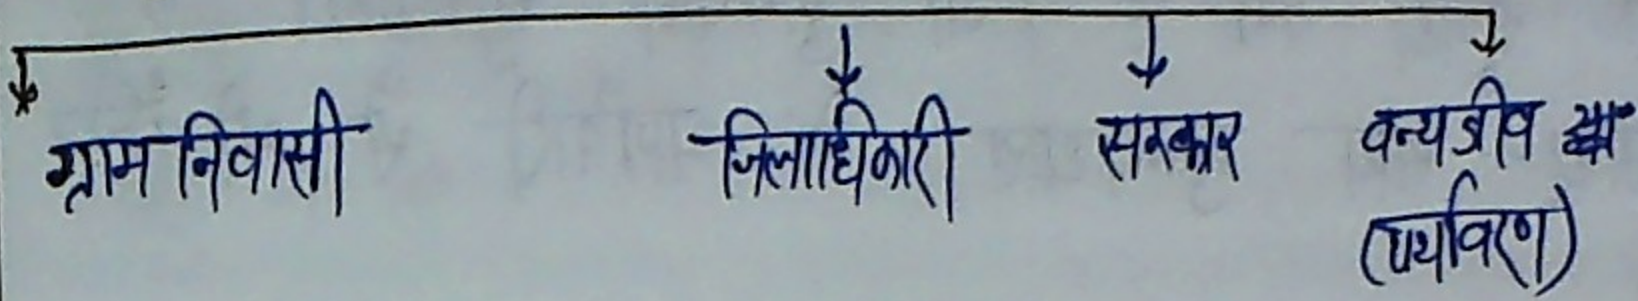 ग्राम निवासी जिलाधिकारी सरकार वन्यजीव
(पर्यावरण)